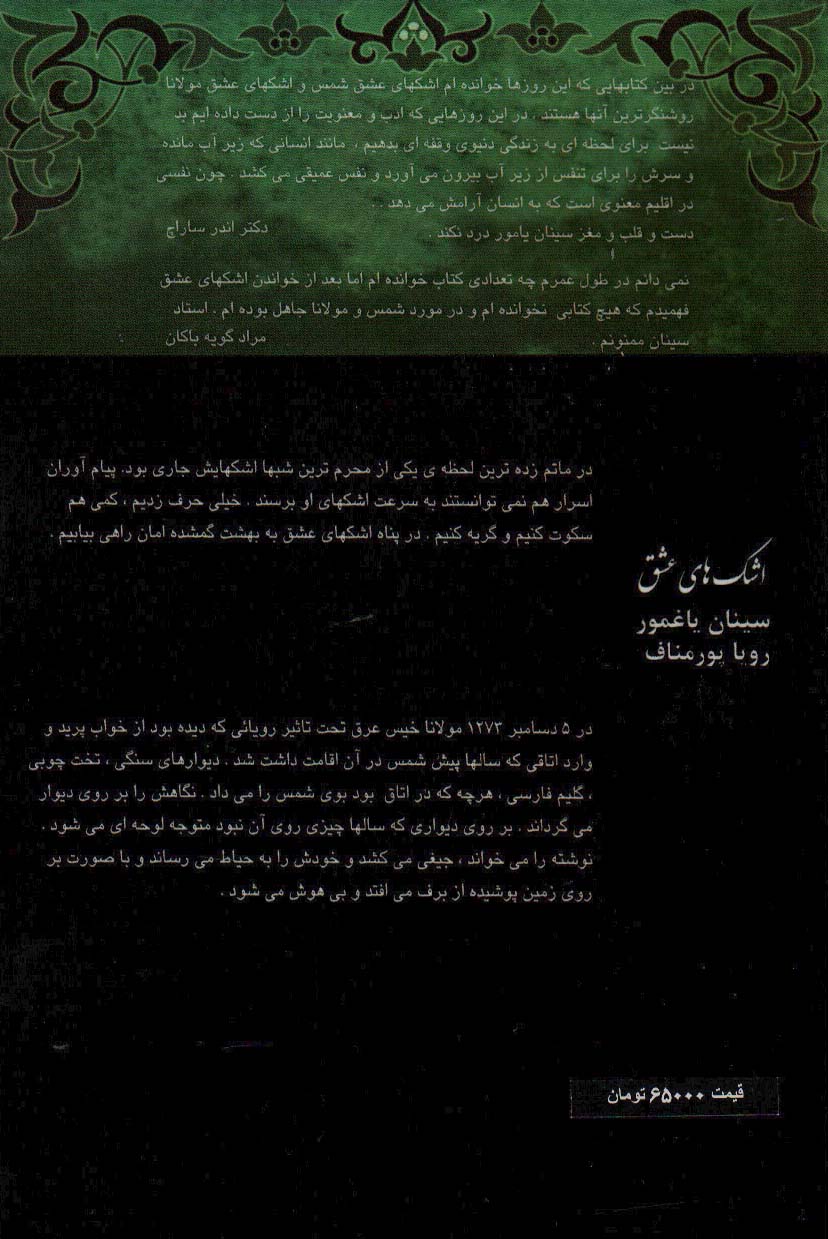 در بین کتابهایی که این روزها خوانده ام اشکهای عشق شمس و اشکهای عشق مولانا
روشنگرترین آنها هستند . در این روزهایی که ادب و معنویت را از دست داده ایم بد
نیست برای لحظه ای به زندگی دنیوی وقفه ای بدهیم ، مانند انسانی که زیر آب مانده
و سرش را برای تنفس از زیر آب بیرون می آورد و نفس عمیقی می کشد . چون نفسی
در اقلیم معنوی است که به انسان آرامش می دهد . .
دست و قلب و مغز سینان یامور درد نکند . دکتر اندر ساراچ
نمی دانم در طول عمرم چه تعدادی کتاب خوانده ام اما بعد از خواندن اشکهای عشق
فهمیدم که هیچ کتابی نخوانده ام و در مورد شمس و مولانا جاهل بوده ام . استاد
سینان ممنونم . مراد گویه باکان
در ماتم زده ترین لحظه ی یکی از محرم ترین شبها اشکهایش جاری بود. پیام آوران
اسرار هم نمی توانستند به سرعت اشکهای او برسند . خیلی حرف زدیم ، کمی هم
سکوت کنیم و گریه کنیم . در پناه اشکهای عشق به بهشت گمشده امان راهی بیابیم .
اشک های عشق
سینان یاغمور
رویا پورمناف
در ۵ دسامبر ۱۲۷۳ مولانا خیس عرق تحت تاثیر رویائی که دیده بود از خواب پرید و
وارد اتاقی که سالها پیش شمس در آن اقامت داشت شد . دیوارهای سنگی ، تخت چوبی
، گلیم فارسی ، هرچه که در اتاق بود بوی شمس را می داد . نگاهش را بر روی دیوار
می گرداند . بر روی دیواری که سالها چیزی روی آن نبود متوجه لوحه ای می شود .
نوشته را می خواند ، جیغی می کشد و خودش را به حیاط می رساند و با صورت بر
روی زمین پوشیده از برف می افتد و بی هوش می شود .
قیمت ۶۵۰۰۰ تومان